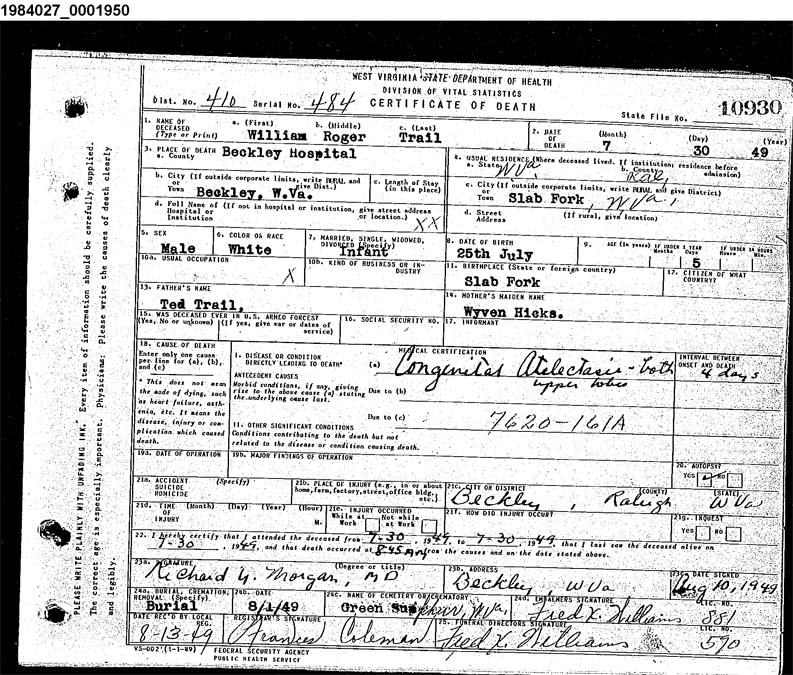 1984027_0001950
WEST VIRGINIA STATE DEPARTMENT OF HEALTH
DIVISION OF VITAL STATISTICS
Dist. No. 410 Serial No. 484 CERTIFICATE OF DEATH
State File No. 10930
1. NAME OF DECEASED (Type or Print) a. (First) William b. (Middle) Roger c. (Last) Trail
2. DATE OF DEATH (Month) 7 (Day) 30 (Year) 49
3. PLACE OF DEATH a. County Beckley Hospital
4. USUAL RESIDENCE (Where deceased lived. If institution; residence before admission) a. State W Va. b. County Ral,
b. City (If outside corporate limits, write RURAL and give Dist.) or Town Beckley, W.Va. c. Length of Stay (in this place)
c. City (If outside corporate limits, write RURAL and give District) or Town Slab Fork, W Va,
d. Full Name of (If not in hospital or institution, give street address or location.) Hospital or Institution XX
d. Street Address (If rural, give location)
5. SEX Male 6. COLOR OR RACE White 7. MARRIED, SINGLE, WIDOWED, DIVORCED (Specify) Infant
8. DATE OF BIRTH 25th July 9. AGE (In years) IF UNDER 1 YEAR Months Days 5 IF UNDER 24 HOURS Hours Min.
10a. USUAL OCCUPATION X 10b. KIND OF BUSINESS OR INDUSTRY
11. BIRTHPLACE (State or foreign country) Slab Fork 12. CITIZEN OF WHAT COUNTRY?
13. FATHER'S NAME Ted Trail,
14. MOTHER'S MAIDEN NAME Wyven Hicks.
15. WAS DECEASED EVER IN U.S. ARMED FORCES? (Yes, No or unknown) (If yes, give war or dates of service) 16. SOCIAL SECURITY NO. 17. INFORMANT
18. CAUSE OF DEATH Enter only one cause per line for (a), (b), and (c)
MEDICAL CERTIFICATION
I. DISEASE OR CONDITION DIRECTLY LEADING TO DEATH* (a) Congenital Atelectasis - both upper lobes
INTERVAL BETWEEN ONSET AND DEATH 4 days
* This does not mean the mode of dying, such as heart failure, asthenia, etc. It means the disease, injury or complication which caused death.
ANTECEDENT CAUSES Morbid conditions, if any, giving rise to the above cause (a) stating the underlying cause last. Due to (b)
Due to (c) 7620-161A
II. OTHER SIGNIFICANT CONDITIONS Conditions contributing to the death but not related to the disease or condition causing death.
19a. DATE OF OPERATION 19b. MAJOR FINDINGS OF OPERATION
20. AUTOPSY? YES NO
21a. ACCIDENT SUICIDE HOMICIDE (Specify) 21b. PLACE OF INJURY (e.g., in or about home, farm, factory, street, office bldg. etc.)
21c. CITY OR DISTRICT (COUNTY) (STATE) Beckley, Raleigh W Va
21d. TIME OF INJURY (Month) (Day) (Year) (Hour) M. 21e. INJURY OCCURRED While at Work Not while at Work 21f. HOW DID INJURY OCCUR? 21g. INQUEST YES NO
22. I hereby certify that I attended the deceased from 7-30, 1949, to 7-30, 1949, that I last saw the deceased alive on
7-30, 1949, and that death occurred at 8:45 AM from the causes and on the date stated above.
23a. SIGNATURE (Degree or title) Richard G. Morgan, MD 23b. ADDRESS Beckley, W Va 23c. DATE SIGNED Aug 10, 1949
24a. BURIAL, CREMATION, REMOVAL (Specify) Burial 24b. DATE 8/1/49 24c. NAME OF CEMETERY OR CREMATORY Green Sulphur, W Va. 24d. EMBALMERS SIGNATURE Fred X. Williams LIC. NO. 881
DATE REC'D BY LOCAL REG. 8-13-49 REGISTRAR'S SIGNATURE Frances Coleman 25. FUNERAL DIRECTORS SIGNATURE Fred X. Williams LIC. NO. 590
VS-002 (1-1-49) FEDERAL SECURITY AGENCY
PUBLIC HEALTH SERVICE
PLEASE WRITE PLAINLY WITH UNFADING INK. Every item of information should be carefully supplied.
The correct age is especially important. Physicians: Please write the causes of death clearly
and legibly.